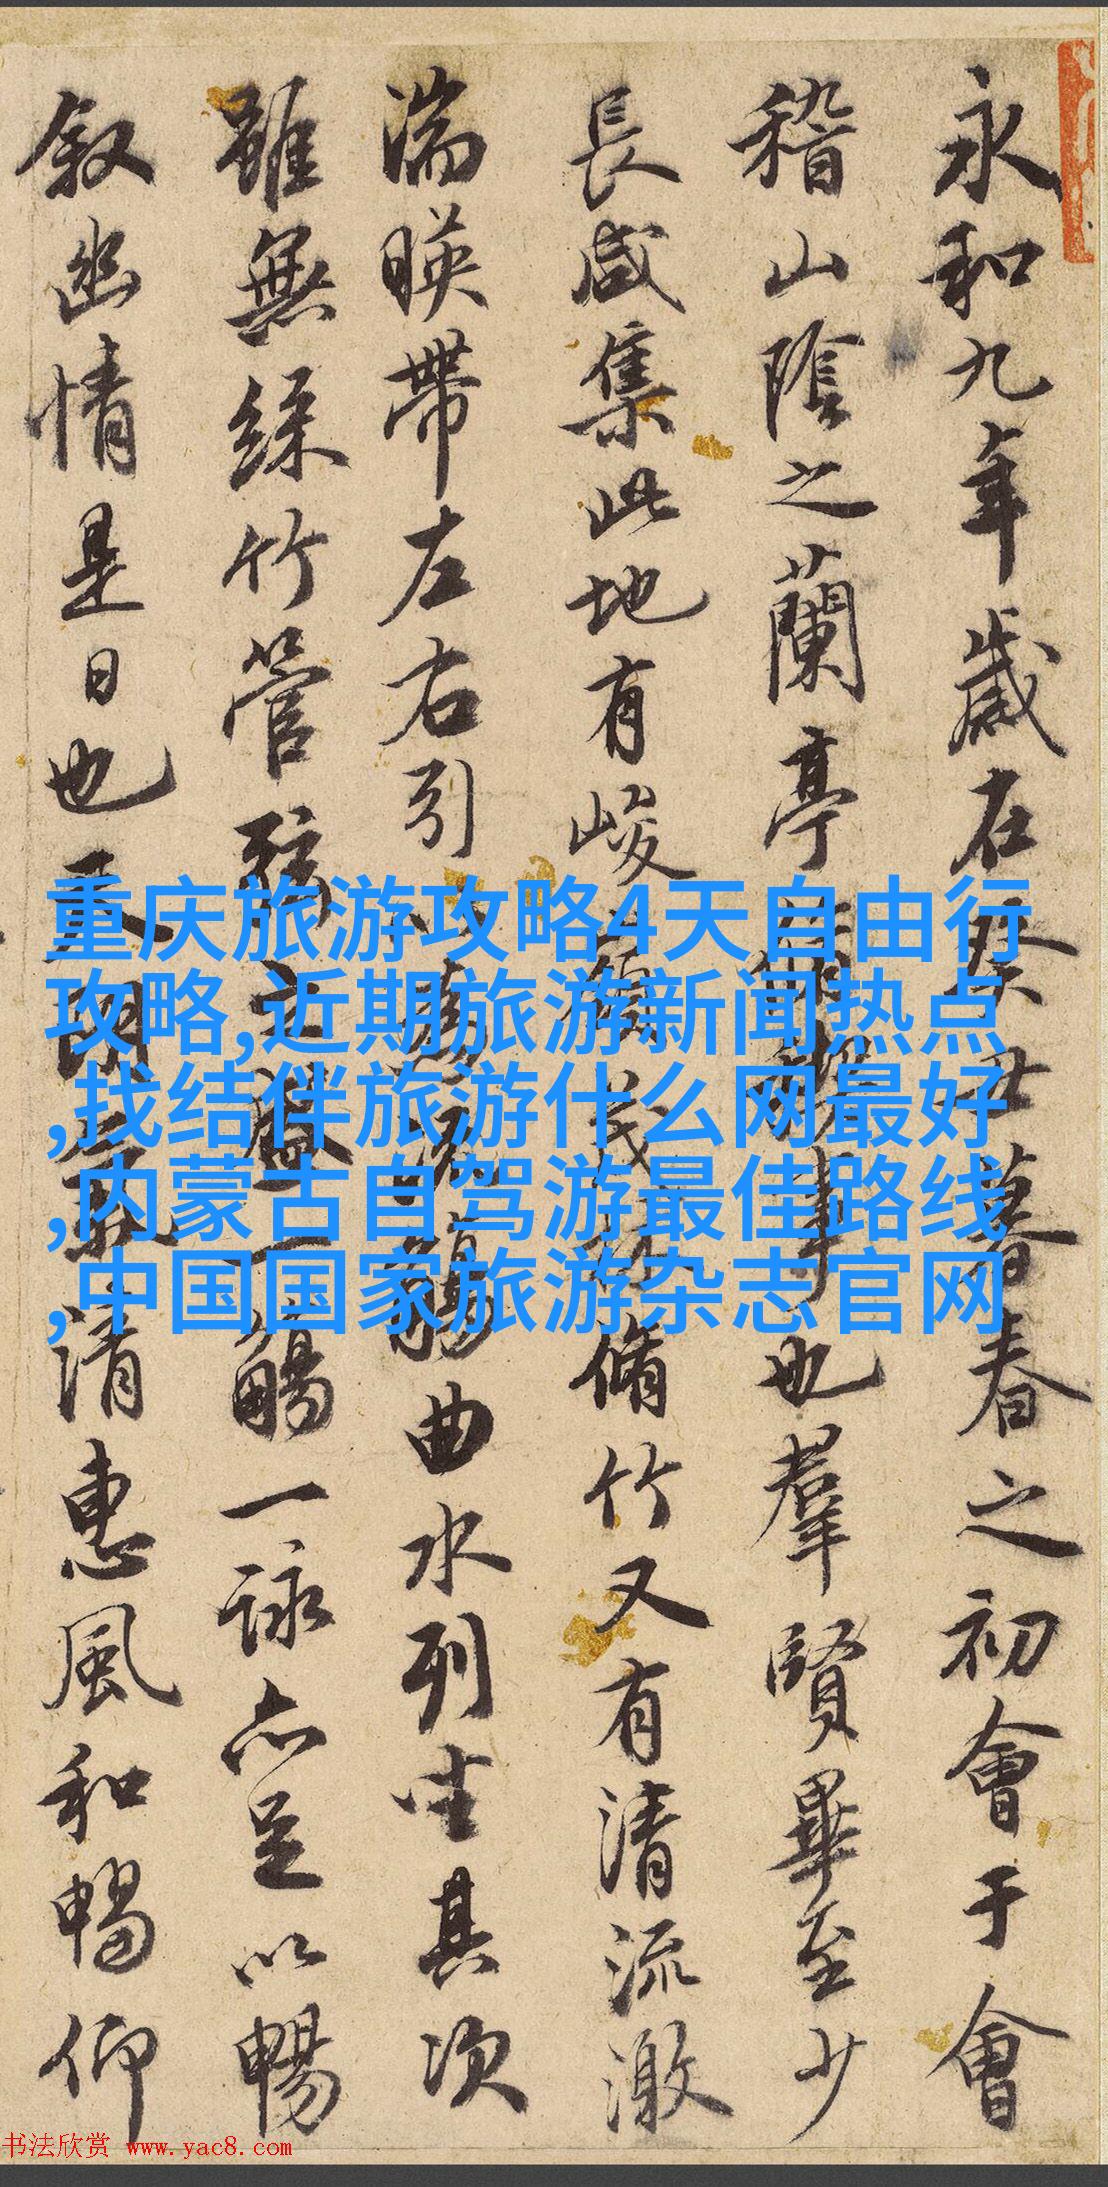 永和九年歲在癸丑暮春之初會于會
稽山陰之蘭亭脩禊事也羣賢畢至少
長咸集此地有峻領茂林脩竹又有清流激
湍暎帶左右引以為流觴曲水列坐其次
雖無絲竹管弦之盛一觴一詠亦足以暢
叙幽情是日也天朗氣清惠風和暢仰
重庆旅游攻略4天自由行
攻略,近期旅游新闻热点
,找结伴旅游什么网最好
,内蒙古自驾游最佳路线
,中国国家旅游杂志官网
书法欣赏 www.yac8.com